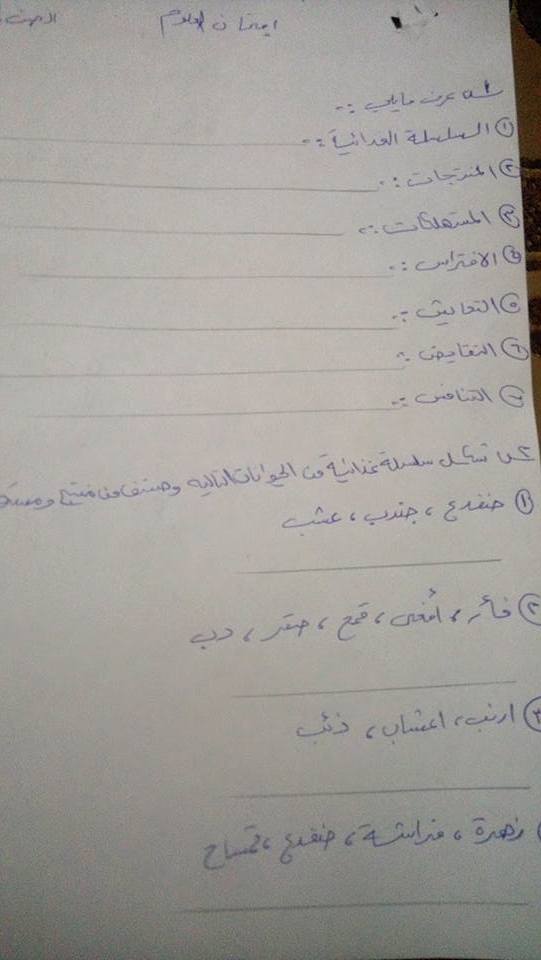 امتحان العلوم الصف
س١ عرف مايلي :-
① السلسلة الغذائية :-
② المنتجات :-
③ المستهلكات :-
④ الافتراس :-
⑤ التعايش :-
⑥ التقايض :-
⑦ التنافس :-
س٢ شكل سلسلة غذائية من الحيوانات التالية وصنف من منتج و
① ضفدع ، جندب ، عشب
② فأر ، أفعى ، قمح ، صقر ، دب
③ ارنب ، اعشاب ، ذئب
زهرة ، فراشة ، ضفدع ، تمساح